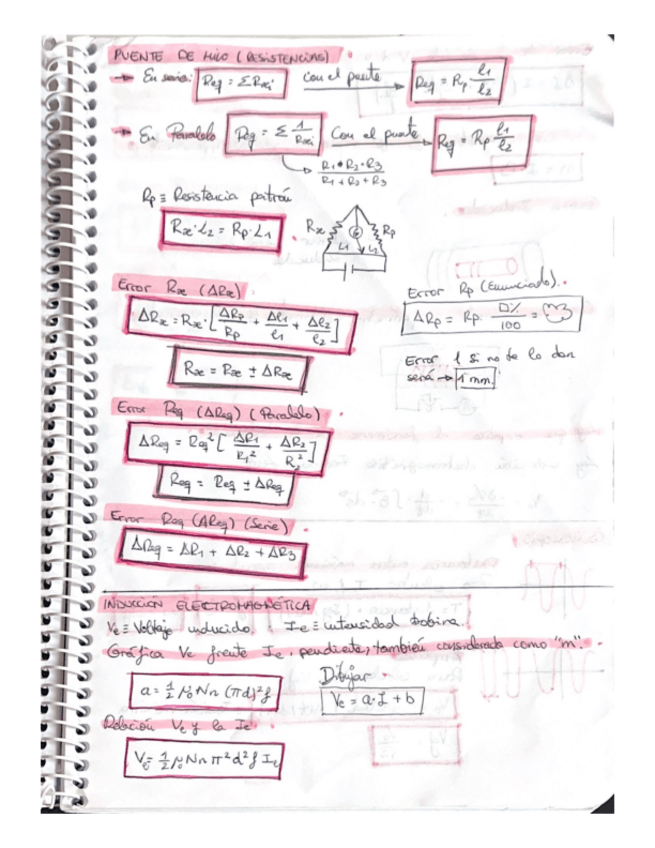 PUENTE DE HILO (RESISTENCIAS)
→ En serie: Req = ΣRxi con el puente → Req = Rp · l1/l2
→ En Paralelo Req = Σ 1/Rxi Con el puente → Req = Rp l1/l2
R1•R2•R3 / R1+R2+R3
Rp ≡ Resistencia patrón
Rx·L2 = Rp·L1
Rx Rp
L1 L2
Error Rx (ΔRx)
ΔRx = Rx·[ΔRp/Rp + Δl1/l1 + Δl2/l2]
Rx = Rx ± ΔRx
Error Rp (Enunciado).
ΔRp = Rp · □%/100 =
Error l si no te lo dan
será → 1 mm.
Error Req (ΔReq) (Paralelo)
ΔReq = Req² [ΔR1/R1² + ΔR2/R2²]
Req = Req ± ΔReq
Error Req (ΔReq) (Serie)
ΔReq = ΔR1 + ΔR2 + ΔR3
INDUCCIÓN ELECTROMAGNÉTICA
Vε ≡ Voltaje inducido. Iε ≡ intensidad bobina.
Gráfica Vε frente Iε, pendiente, también considerada como "m".
a = ½ μ0 N n (πd)² f
Dibujar
Vε = a·I + b
Relación Vε y la Iε
Vε = ½ μ0 N n π² d² f Iε